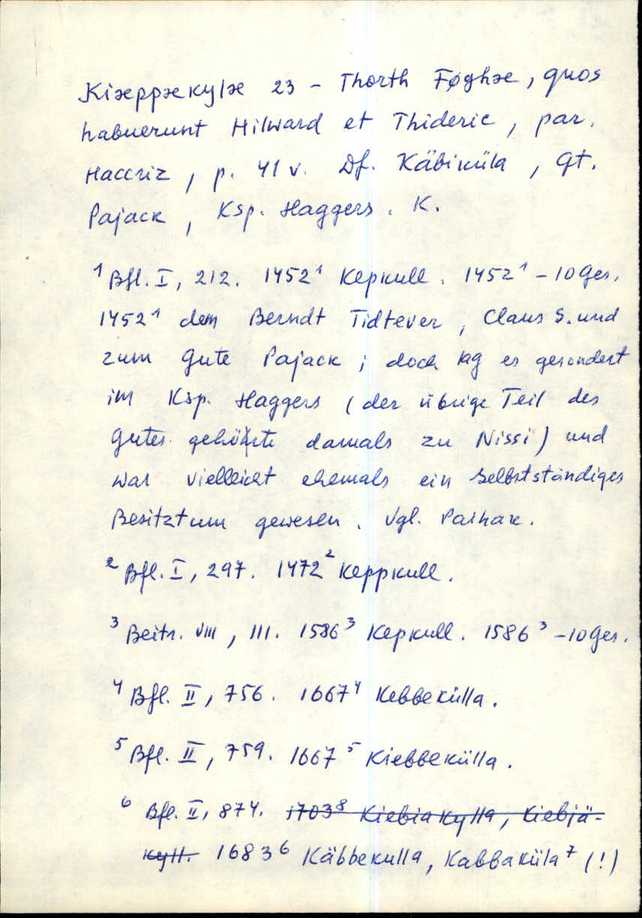 Kiæppækylæ 23 – Thorth Føghæ, quos
habuerunt Hilward et Thideric, par.
Haccriz, p. 41 v. Df. Käbiküla, Gt.
Pajack, Ksp. Haggers. K.
¹ Bfl. I, 212. 1452¹ Kepkull. 1452¹ – 10 Ges.
1452¹ dem Berndt Tidtever, Claus S. und
zum Gute Pajack; doch lag es gesondert
im Ksp. Haggers (der übrige Teil des
Gutes gehörte damals zu Nissi) und
war vielleicht ehemals ein Selbstständiges
Besitztum gewesen. Vgl. Paihak.
² Bfl. I, 297. 1472² Keppkull.
³ Beitr. VIII, 111. 1586³ Kepkull. 1586³ – 10 Ges.
⁴ Bfl. II, 756. 1667⁴ Kebbekülla.
⁵ Bfl. II, 759. 1667⁵ Kiebbekülla.
⁶ Bfl. II, 874. 1703⁸ Kiebiakylla, Kiebjä-
kyll. 1683⁶ Käbbekulla, Kabbaküla⁷ (!)